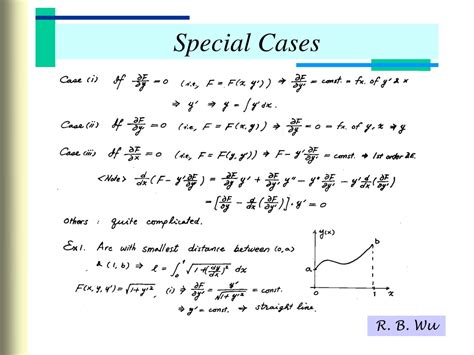 Special Cases
Case (i) If ∂F/∂y = 0 (i.e., F = F(x, y')) ⇒ ∂F/∂y' = const. = fx. of y' & x
⇒ y' ⇒ y = ∫ y' dx.
Case (ii) If ∂F/∂y' = 0 (i.e., F = F(x, y)) ⇒ ∂F/∂y = 0 = fx. of y, x ⇒ y
Case (iii) If ∂F/∂x = 0 (i.e., F = F(y, y')) ⇒ F - y' ∂F/∂y' = const. ⇒ 1st order DE.
<Note> d/dx (F - y' ∂F/∂y') = ∂F/∂y y' + ∂F/∂y' y" - y" ∂F/∂y' - y' d/dx (∂F/∂y')
= [∂F/∂y - d/dx (∂F/∂y')] · y' = 0
Others : quite complicated.
Ex 1. Arc with smallest distance between (0, a)
& (1, b) ⇒ l = ∫₀¹ √(1+(dy/dx)²) dx
F(x, y, y') = √(1+y'²) , (i) ⇒ ∂F/∂y' = y'/√(1+y'²) = const.
⇒ y' = const. ⇒ straight line.
y(x)
b
a
0
1
x
R. B. Wu